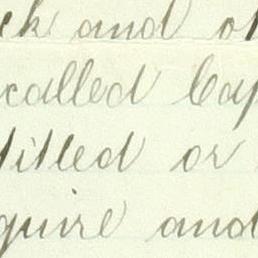 ck and of
called Cap
titled or
quire and